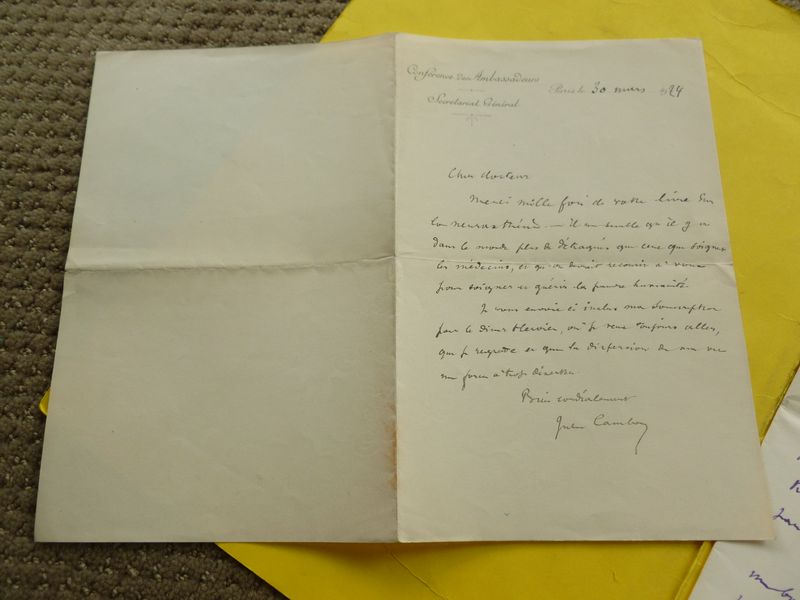 Conférence des Ambassadeurs
Secrétariat Général
Paris le 30 mars 1924
Cher docteur
Merci mille fois de votre livre sur
la neurasthénie — il me semble qu'il y a
dans le monde plus de détraqués que ceux que soignent
les médecins, et qu'on devrait recourir à vous
pour soigner et guérir la pauvre humanité.
Je vous envoie ci inclus ma souscription
pour le diner Hervieu, où je veux toujours aller,
que je regrette et que la dispersion de ma vie
me force à trop déserter.
Bien cordialement
Jules Cambon